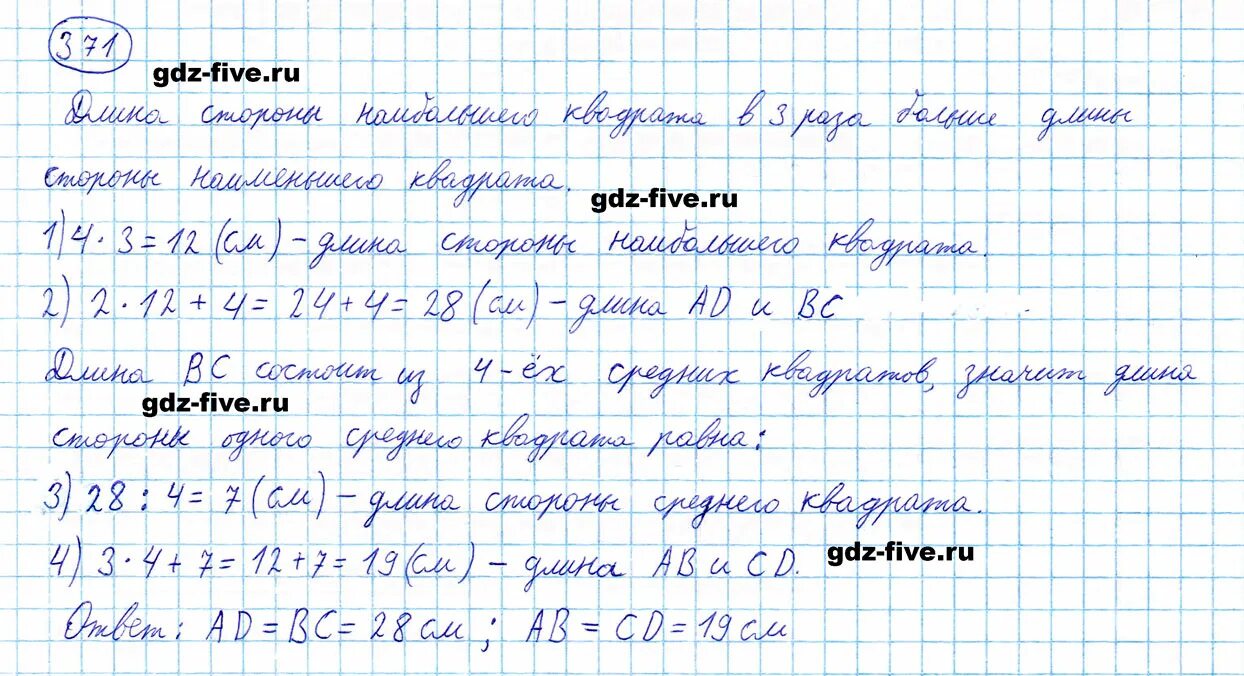 371
gdz-five.ru
Длина стороны наибольшего квадрата в 3 раза больше длины
стороны наименьшего квадрата.
gdz-five.ru
1) 4 · 3 = 12 (см) – длина стороны наибольшего квадрата.
2) 2 · 12 + 4 = 24 + 4 = 28 (см) – длина AD и BC
Длина BC состоит из 4-ёх средних квадратов, значит длина
gdz-five.ru
стороны одного среднего квадрата равна:
3) 28 : 4 = 7 (см) – длина стороны среднего квадрата.
4) 3 · 4 + 7 = 12 + 7 = 19 (см) – длина AB и CD.
gdz-five.ru
Ответ: AD = BC = 28 см ; AB = CD = 19 см